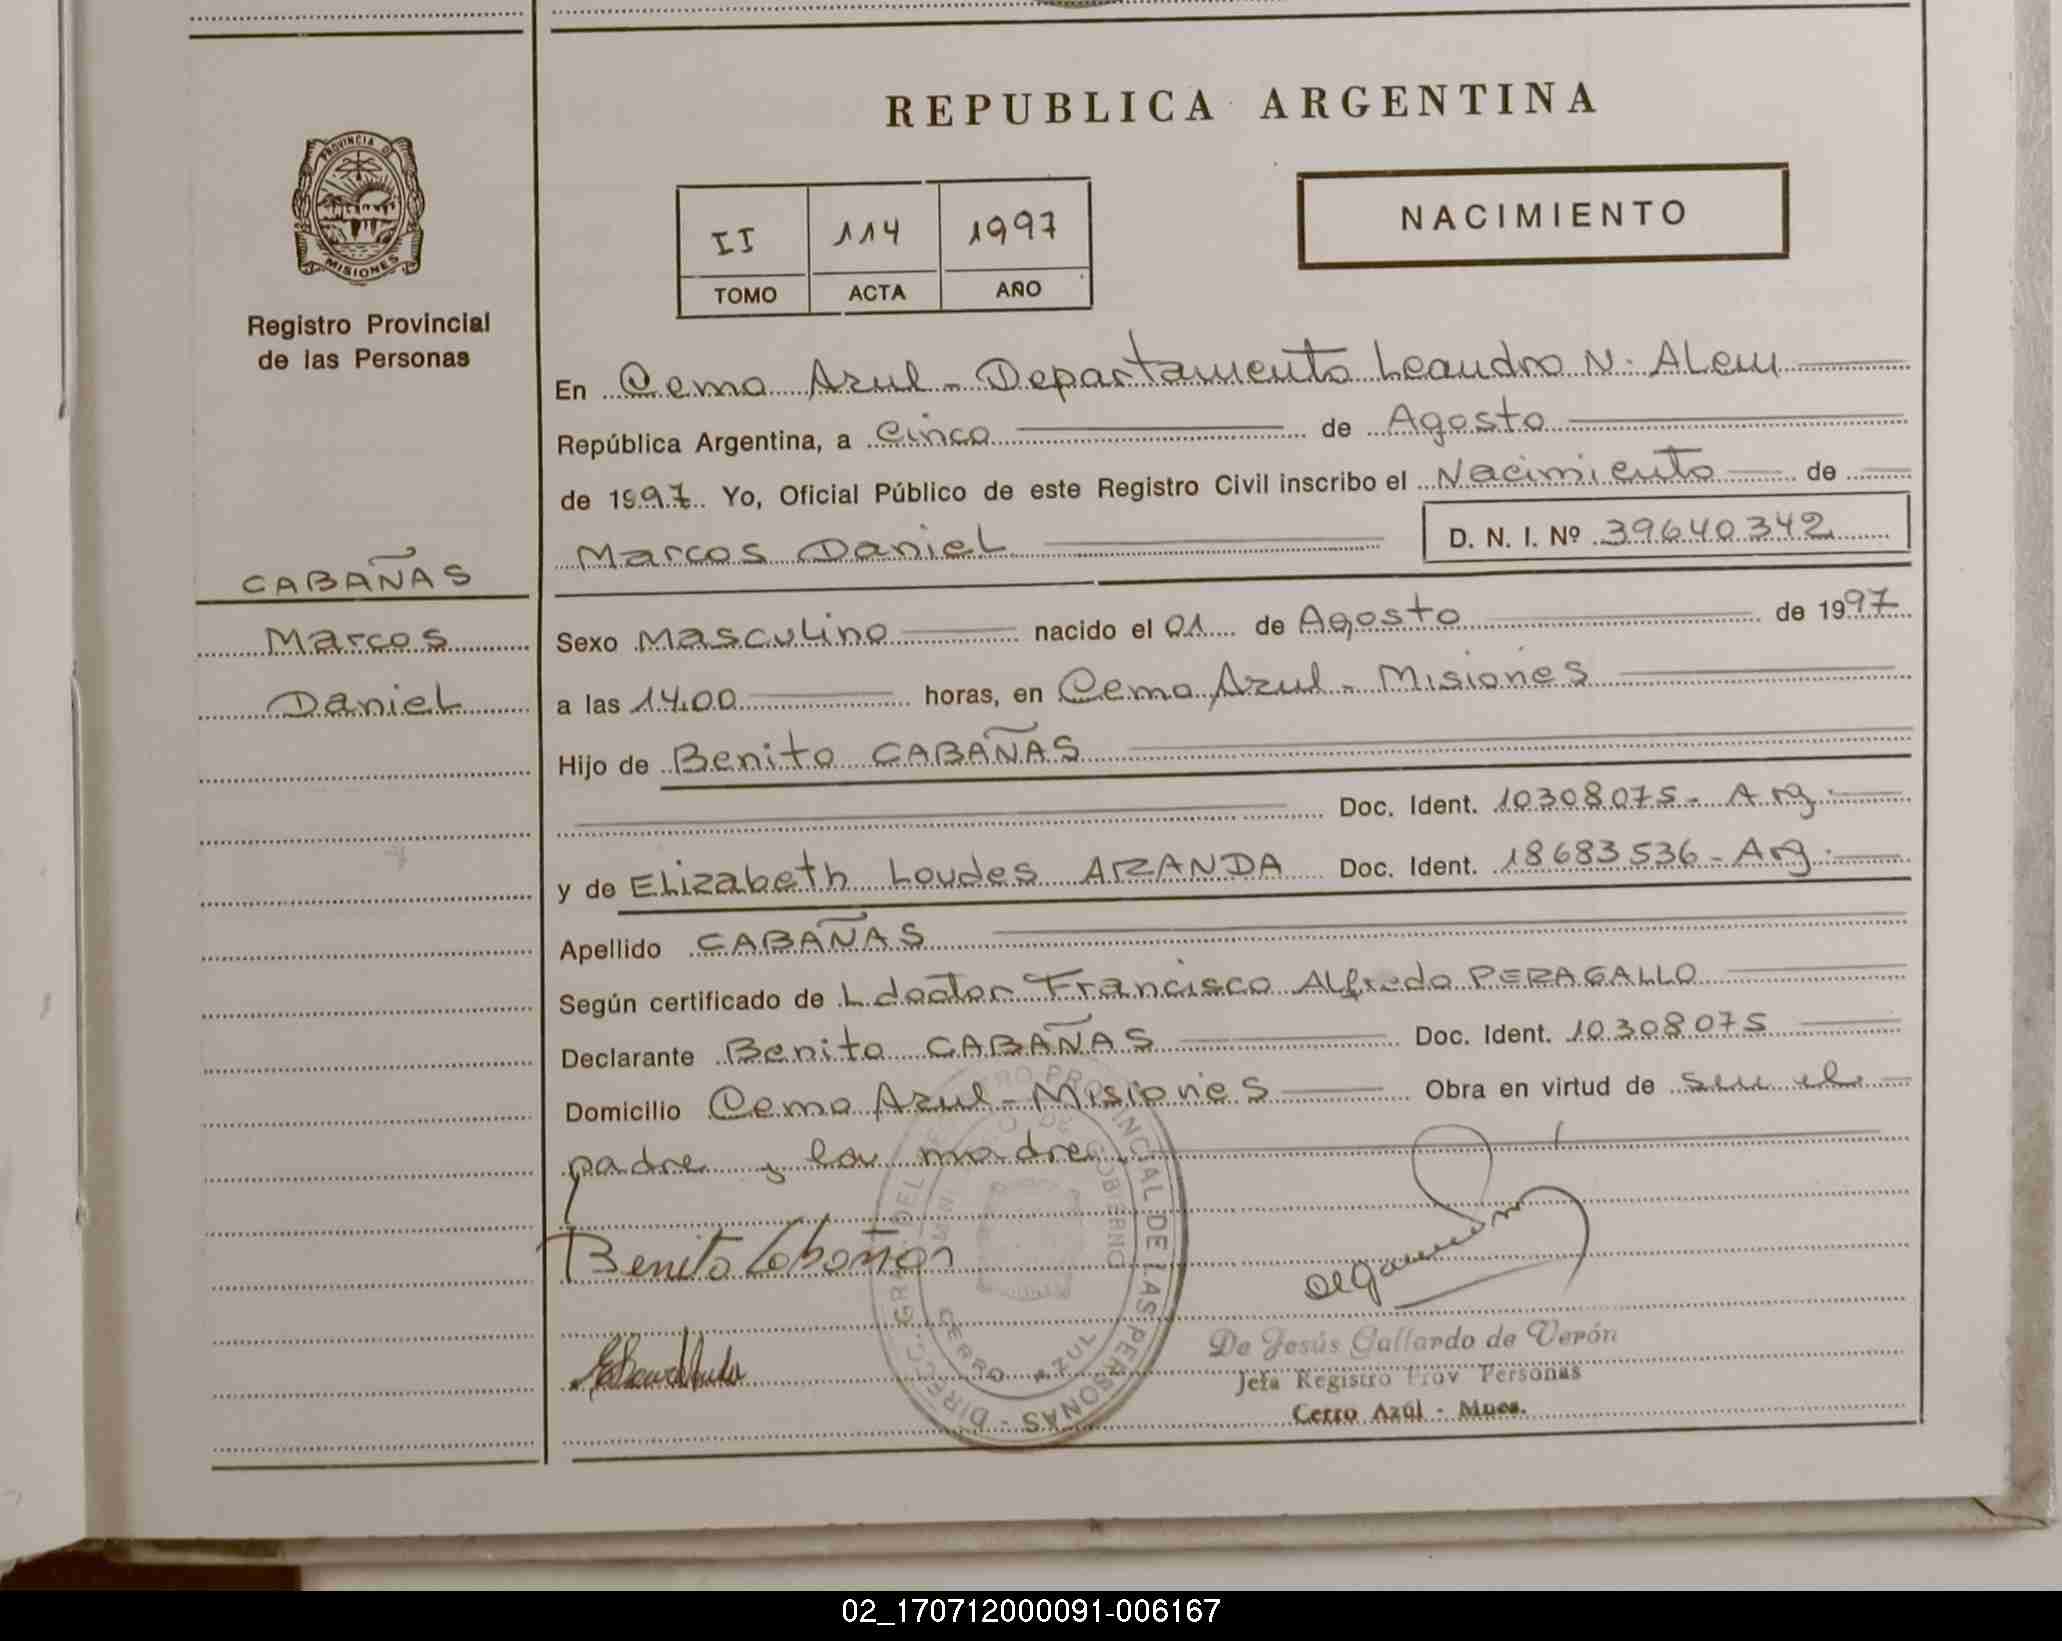 REPUBLICA ARGENTINA
PROVINCIA D
MISIONES
Registro Provincial
de las Personas
NACIMIENTO
II 114 1997
TOMO ACTA AÑO
En Cerro Azul - Departamento Leandro N. ALem
República Argentina, a Cinco de Agosto
de 1997. Yo, Oficial Público de este Registro Civil inscribo el Nacimiento de
Marcos DanieL D. N. I. Nº 39640342
CABAÑAS
Marcos
DanieL
Sexo MascuLino nacido el 01 de Agosto de 1997
a las 14.00 horas, en Cerro Azul - Misiones
Hijo de Benito CABAÑAS
Doc. Ident. 10308075 - Arg.
y de ELizabeth Loudes ARANDA Doc. Ident. 18683536 - Arg.
Apellido CABAÑAS
Según certificado de L doctor Francisco ALfredo PERAGALLO
Declarante Benito CABAÑAS Doc. Ident. 10308075
Domicilio Cerro Azul - Misiones Obra en virtud de ser el
padre y la madre
Benito Cabañas
DIRECC. GRAL. DEL REGISTRO PROVINCIAL DE LAS PERSONAS
MIN. DE GOBIERNO
CERRO AZUL
De Jesús Gallardo de Verón
Jefa Registro Prov Personas
Cerro Azul - Mnes.
02_170712000091-006167